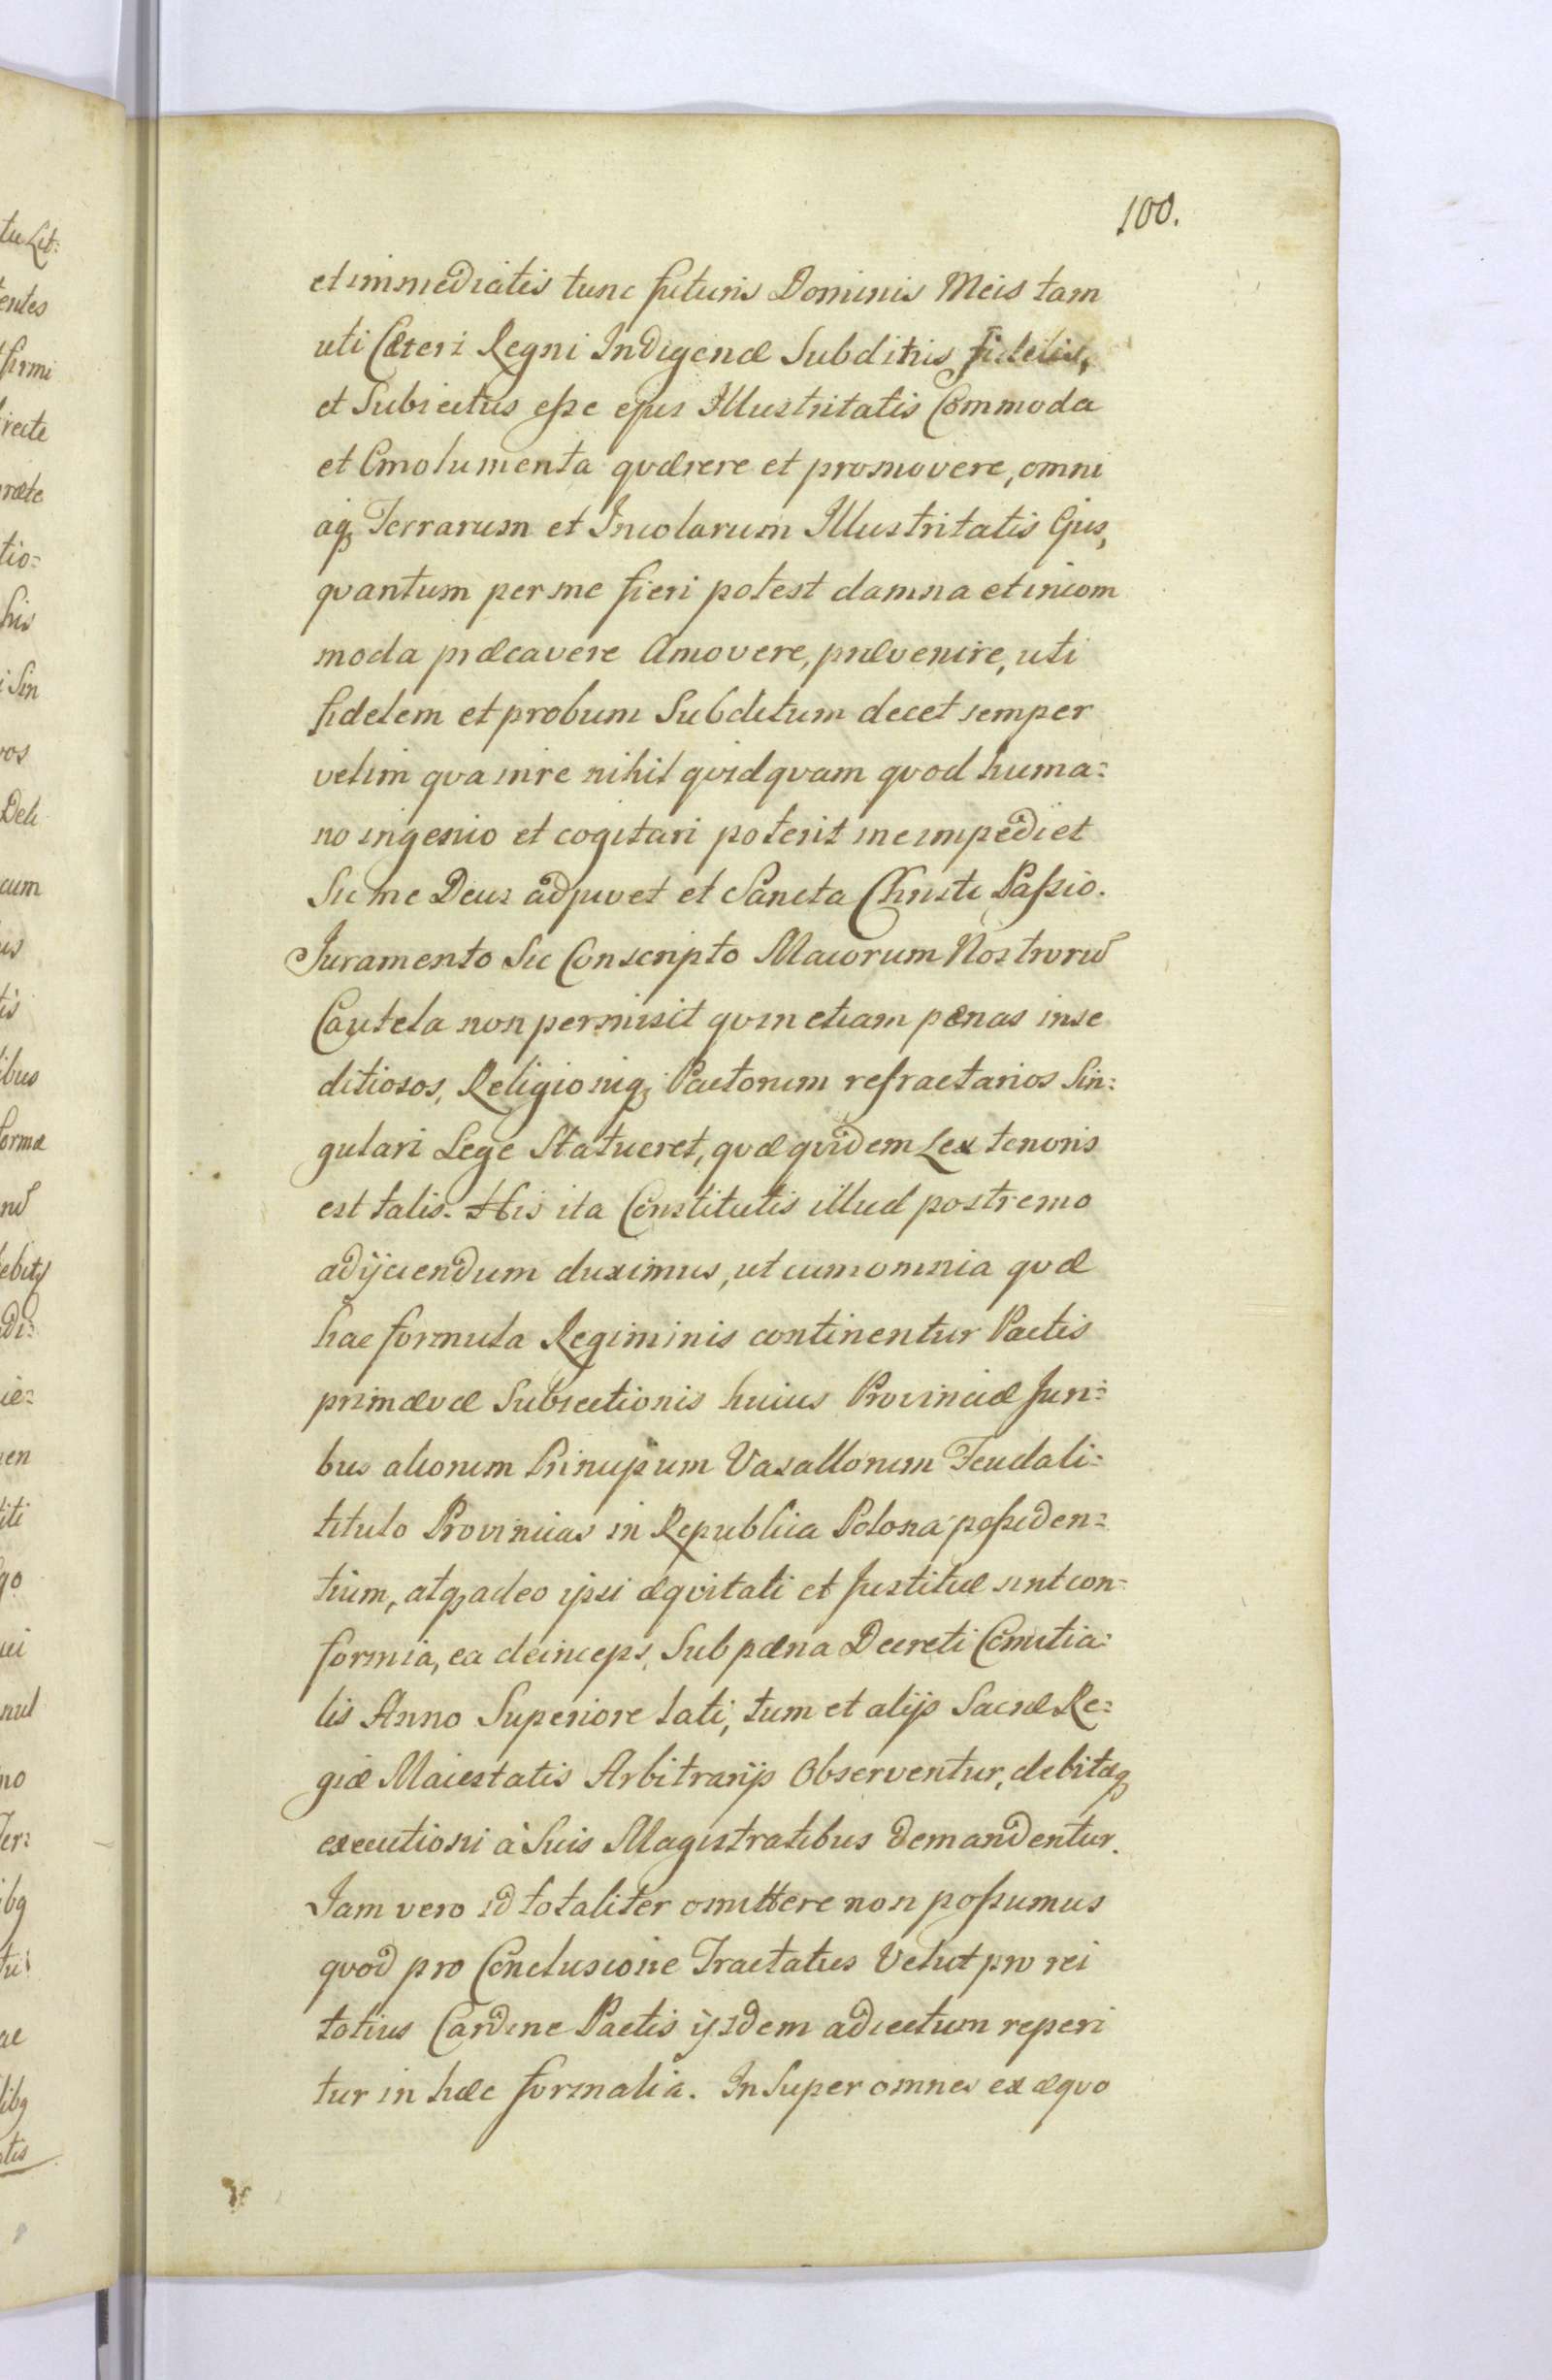 100.
et immediatis tunc futuris Dominis Meis tam
uti Cæteri Regni Indigenæ Subditus fidelis,
et Subiectus eße ejus Illustritatis Commoda
et Emolumenta qværere et promovere, omni
aq Terrarum et Incolarum Illustritatis Ejus,
qvantum per me fieri potest damna et incom
moda præcavere Amovere, prævenire, uti
fidelem et probum Subditum decet semper
velim qva in re nihil qvidqvam qvod huma:
no ingenio et cogitari poterit me impediet
Sic me Deus adjuvet et Sancta Christi Paßio.
Juramento Sic Conscripto Maiorum Nostrorū
Cautela non permisit qvin etiam pœnas in se
ditiosos, Religioniq; Pactorum refractarios Sin:
gulari Lege Statueret, qvæ qvidem Lex tenoris
est talis. His ita Constitutis illud postremo
adijciendum duximus, ut cum omnia qvæ
hac formula Regiminis continentur Pactis
primævæ Subiectionis huius Provinciæ Juri:
bus aliorum Principum Vasallorum Feudali:
titulo Provincias in Republica Polona poßiden:
tium, atq adeo ipsi æqvitati et Justitiæ sint con:
formia, ea deinceps, Sub pœna Decreti Comitia:
lis Anno Superiore lati, tum et alijs Sacræ Re:
giæ Maiestatis Arbitrarijs Observentur, debitæq
executioni à Suis Magistratibus demandentur.
Iam vero id totaliter omittere non poßumus
qvod pro Conclusione Tractatus Velut pro rei
totius Cardine Pactis ijsdem adiectum reperi
tur in hæc formalia. In Super omnes ex æqvo